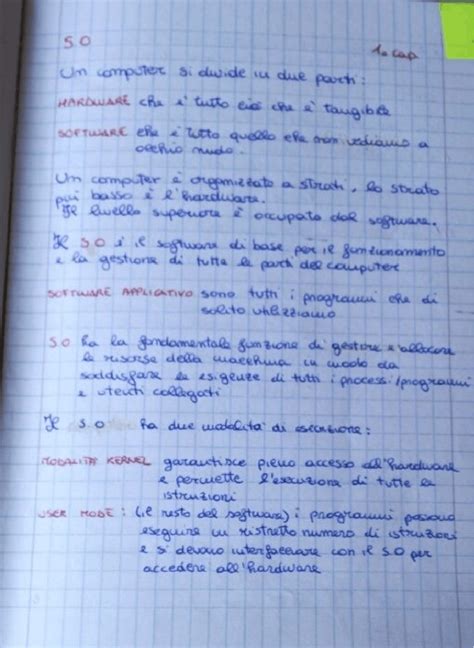 S.O
1° cap
Un computer si divide in due parti:
HARDWARE che è tutto ciò che è tangibile
SOFTWARE che è tutto quello che non vediamo a
occhio nudo.
Un computer è organizzato a strati, lo strato
più basso è l'hardware.
Il livello superiore è occupato dal software.
Il S.O è il software di base per il funzionamento
e la gestione di tutte le parti del computer
SOFTWARE APPLICATIVO sono tutti i programmi che di
solito utilizziamo
S.O ha la fondamentale funzione di gestire e allocare
le risorse della macchina in modo da
soddisfare le esigenze di tutti i processi/programmi
e utenti collegati
Il S.O ha due modalità di esecuzione:
MODALITÀ KERNEL garantisce pieno accesso all'hardware
e permette l'esecuzione di tutte le
istruzioni
USER MODE: (il resto del software) i programmi possono
eseguire un ristretto numero di istruzioni
e si devono interfacciare con il S.O per
accedere all'hardware